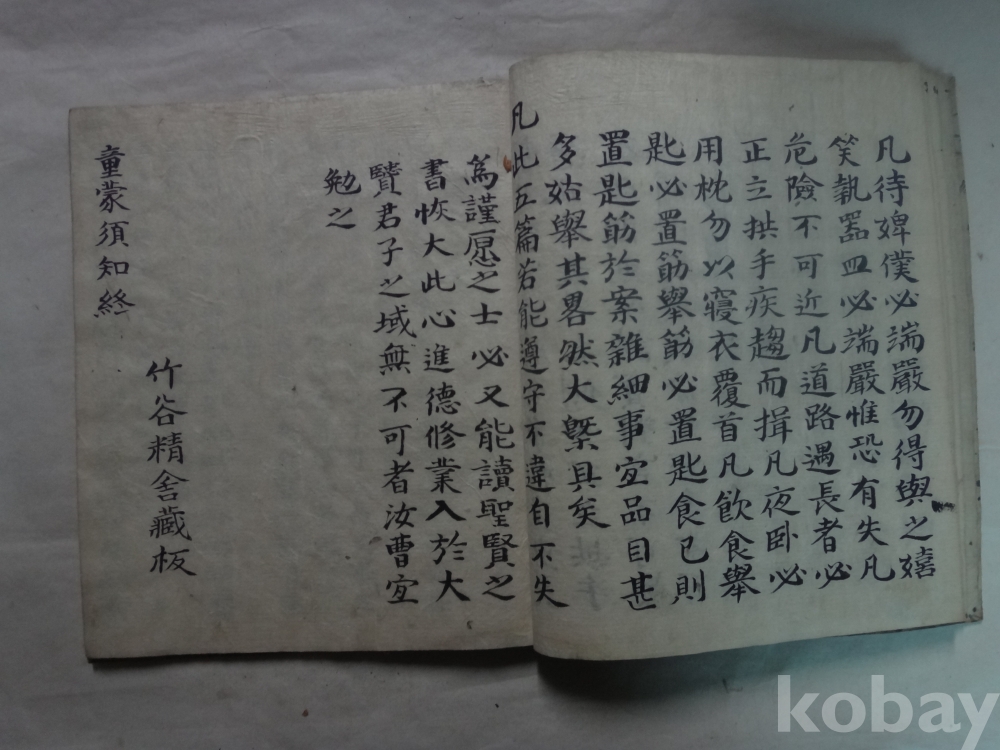 凡待婢僕必端嚴勿得與之嬉
笑執器皿必端嚴惟恐有失凡
危險不可近凡道路遇長者必
正立拱手疾趨而揖凡夜卧必
用枕勿以寢衣覆首凡飮食舉
匙必置筯舉筯必置匙食已則
置匙筯於案雜細事宜品目甚
多姑舉其畧然大槩具矣
凡此五篇若能遵守不違自不失
爲謹愿之士必又能讀聖賢之
書恢大此心進德修業入於大
賢君子之域無不可者汝曹宜
勉之
童蒙須知終
竹谷精舍藏板
kobay